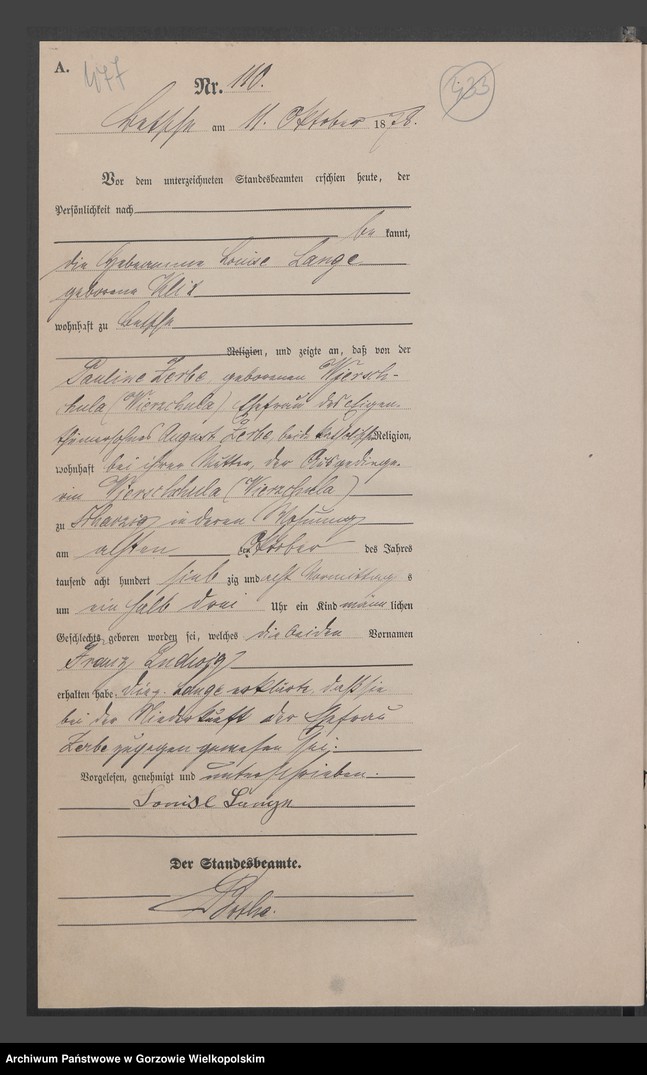 A.
477
433
Nr. 110.
Betsche am 11. Oktober 1878.
Vor dem unterzeichneten Standesbeamten erschien heute, der
Persönlichkeit nach
be kannt,
die Hebamme Louise Lange
geborene Klix
wohnhaft zu Betsche
Religion, und zeigte an, daß von der
Pauline Zerbe, geborenen Wiersch-
chula (Wierschula) Ehefrau des Eigen-
thümersohnes August Zerbe, beide katholischer Religion,
wohnhaft bei ihrer Mutter, der Ausgedinge-
rin (Wierschula)
zu in deren Wohnung
am elften ten Oktober des Jahres
tausend acht hundert sieb zig und acht Vormittag s
um ein halb drei Uhr ein Kind männ lichen
Geschlechts geboren worden sei, welches die beiden Vornamen
Franz Ludwig
erhalten habe. Die p. Lange erklärte, daß sie
bei der Niederkunft der Ehefrau
Zerbe zugegen gewesen sei.
Vorgelesen, genehmigt und unterschrieben.
Louise Lange
Der Standesbeamte.
Bothe.
Archiwum Państwowe w Gorzowie Wielkopolskim